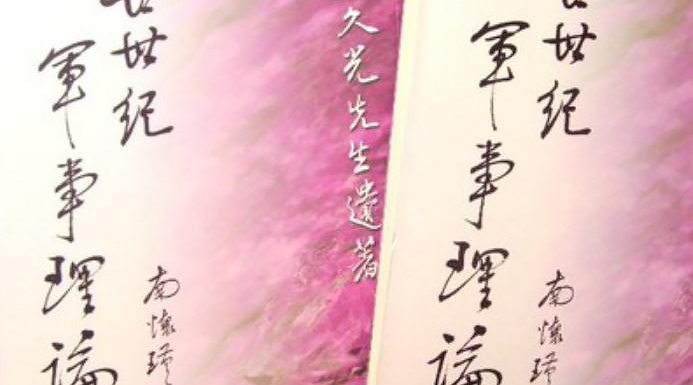 世纪
軍事理論
南懷瑾
久光先生遺著
世纪
軍事理論
南懷瑾